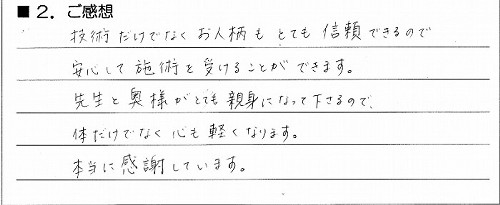 ■2．ご感想
技術だけでなくお人柄もとても信頼できるので
安心して施術を受けることができます。
先生と奥様がとても親身になって下さるので、
体だけでなく心も軽くなります。
本当に感謝しています。